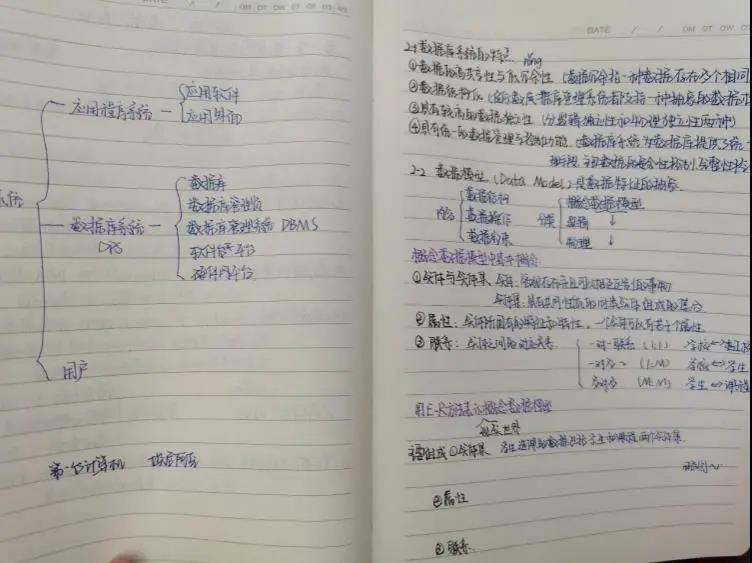 应用软件
应用程序系统
应用界面
数据库
数据库管理员
数据库系统
数据库管理系统 DBMS
DBS
软件平台
硬件平台
用户
第一台计算机 埃尼阿克
DATE / /
2-1 数据库系统的特点
①数据的高共享性与低冗余性 (数据冗余指一种数据存在多个相同
②数据结构化
③具有较高的数据独立性 (分逻辑独立性和物理独立性两种)
④具有统一的数据管理与控制功能 (数据库系统为数据库提供了统一
数据的安全性控制,完整性控
2-2 数据模型 (Data Model) 是数据特征的抽象
数据结构 概念数据模型
内容 数据操作 分类 逻辑 ↓
数据约束 物理 ↓
概念数据模型中基本概念
①实体与实体集 实体:客观存在并且可以相互区别的事物
实体集:具有共同性质的同类实体组成的集合
②属性:实体所固有的特征和特性,一个实体可以有若干个属性
③联系:实体之间的对应关系 一对一联系 (1:1) 学校⟷
一对多~ (1:M) 学校⟷学生
多对多 (M:M) 学生⟷课程
用E-R方法表示概念数据模型
现实世界
主要组成 ①实体集 学生选课的数据包括学生和课程两个实体集
②属性
③联系